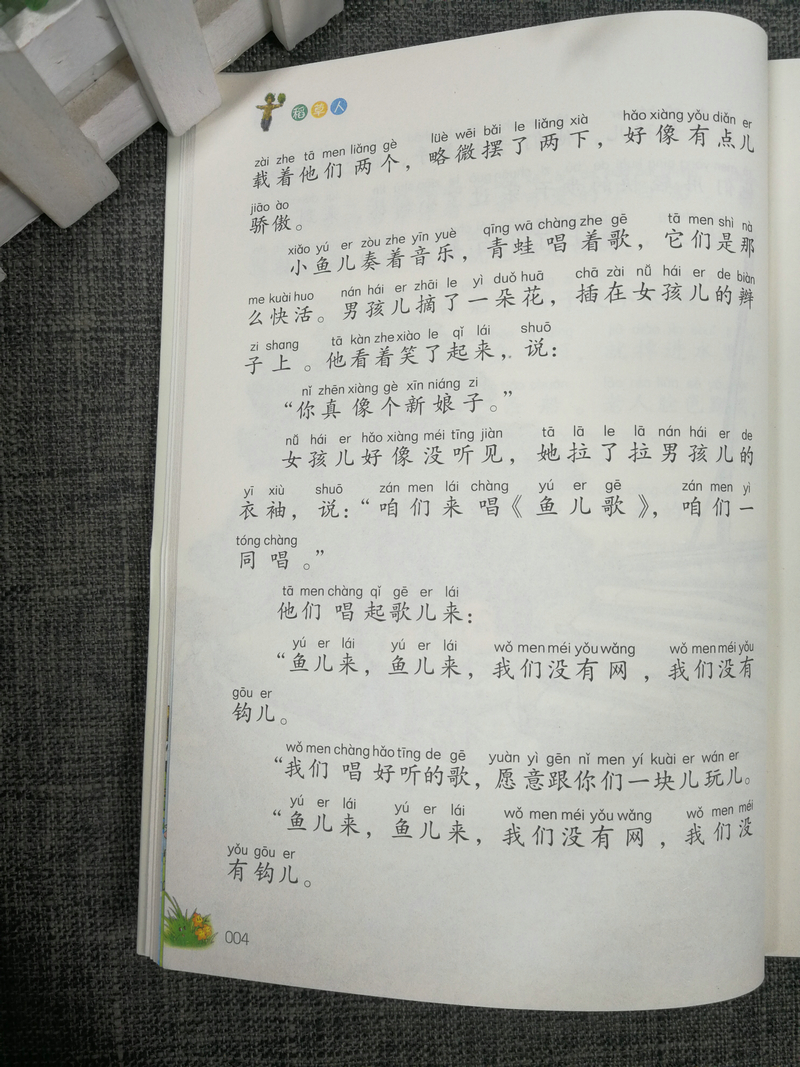 稻草人
zài zhe tā men liǎng gè lüè wēi bǎi le liǎng xià hǎo xiàng yǒu diǎn er
载着他们两个，略微摆了两下，好像有点儿
jiāo ào
骄傲。
xiǎo yú er zòu zhe yīn yuè qīng wā chàng zhe gē tā men shì nà
小鱼儿奏着音乐，青蛙唱着歌，它们是那
me kuài huo nán hái er zhāi le yì duǒ huā chā zài nǚ hái er de biàn
么快活。男孩儿摘了一朵花，插在女孩儿的辫
zi shang tā kàn zhe xiào le qǐ lái shuō
子上。他看着笑了起来，说：
nǐ zhēn xiàng gè xīn niáng zi
“你真像个新娘子。”
nǚ hái er hǎo xiàng méi tīng jiàn tā lā le lā nán hái er de
女孩儿好像没听见，她拉了拉男孩儿的
yī xiù shuō zán men lái chàng yú er gē zán men yì
衣袖，说：“咱们来唱《鱼儿歌》，咱们一
tóng chàng
同唱。”
tā men chàng qǐ gē er lái
他们唱起歌儿来：
yú er lái yú er lái wǒ men méi yǒu wǎng wǒ men méi yǒu
“鱼儿来，鱼儿来，我们没有网，我们没有
gōu er
钩儿。
wǒ men chàng hǎo tīng de gē yuàn yì gēn nǐ men yí kuài er wán er
“我们唱好听的歌，愿意跟你们一块儿玩儿。
yú er lái yú er lái wǒ men méi yǒu wǎng wǒ men méi
“鱼儿来，鱼儿来，我们没有网，我们没
yǒu gōu er
有钩儿。
004